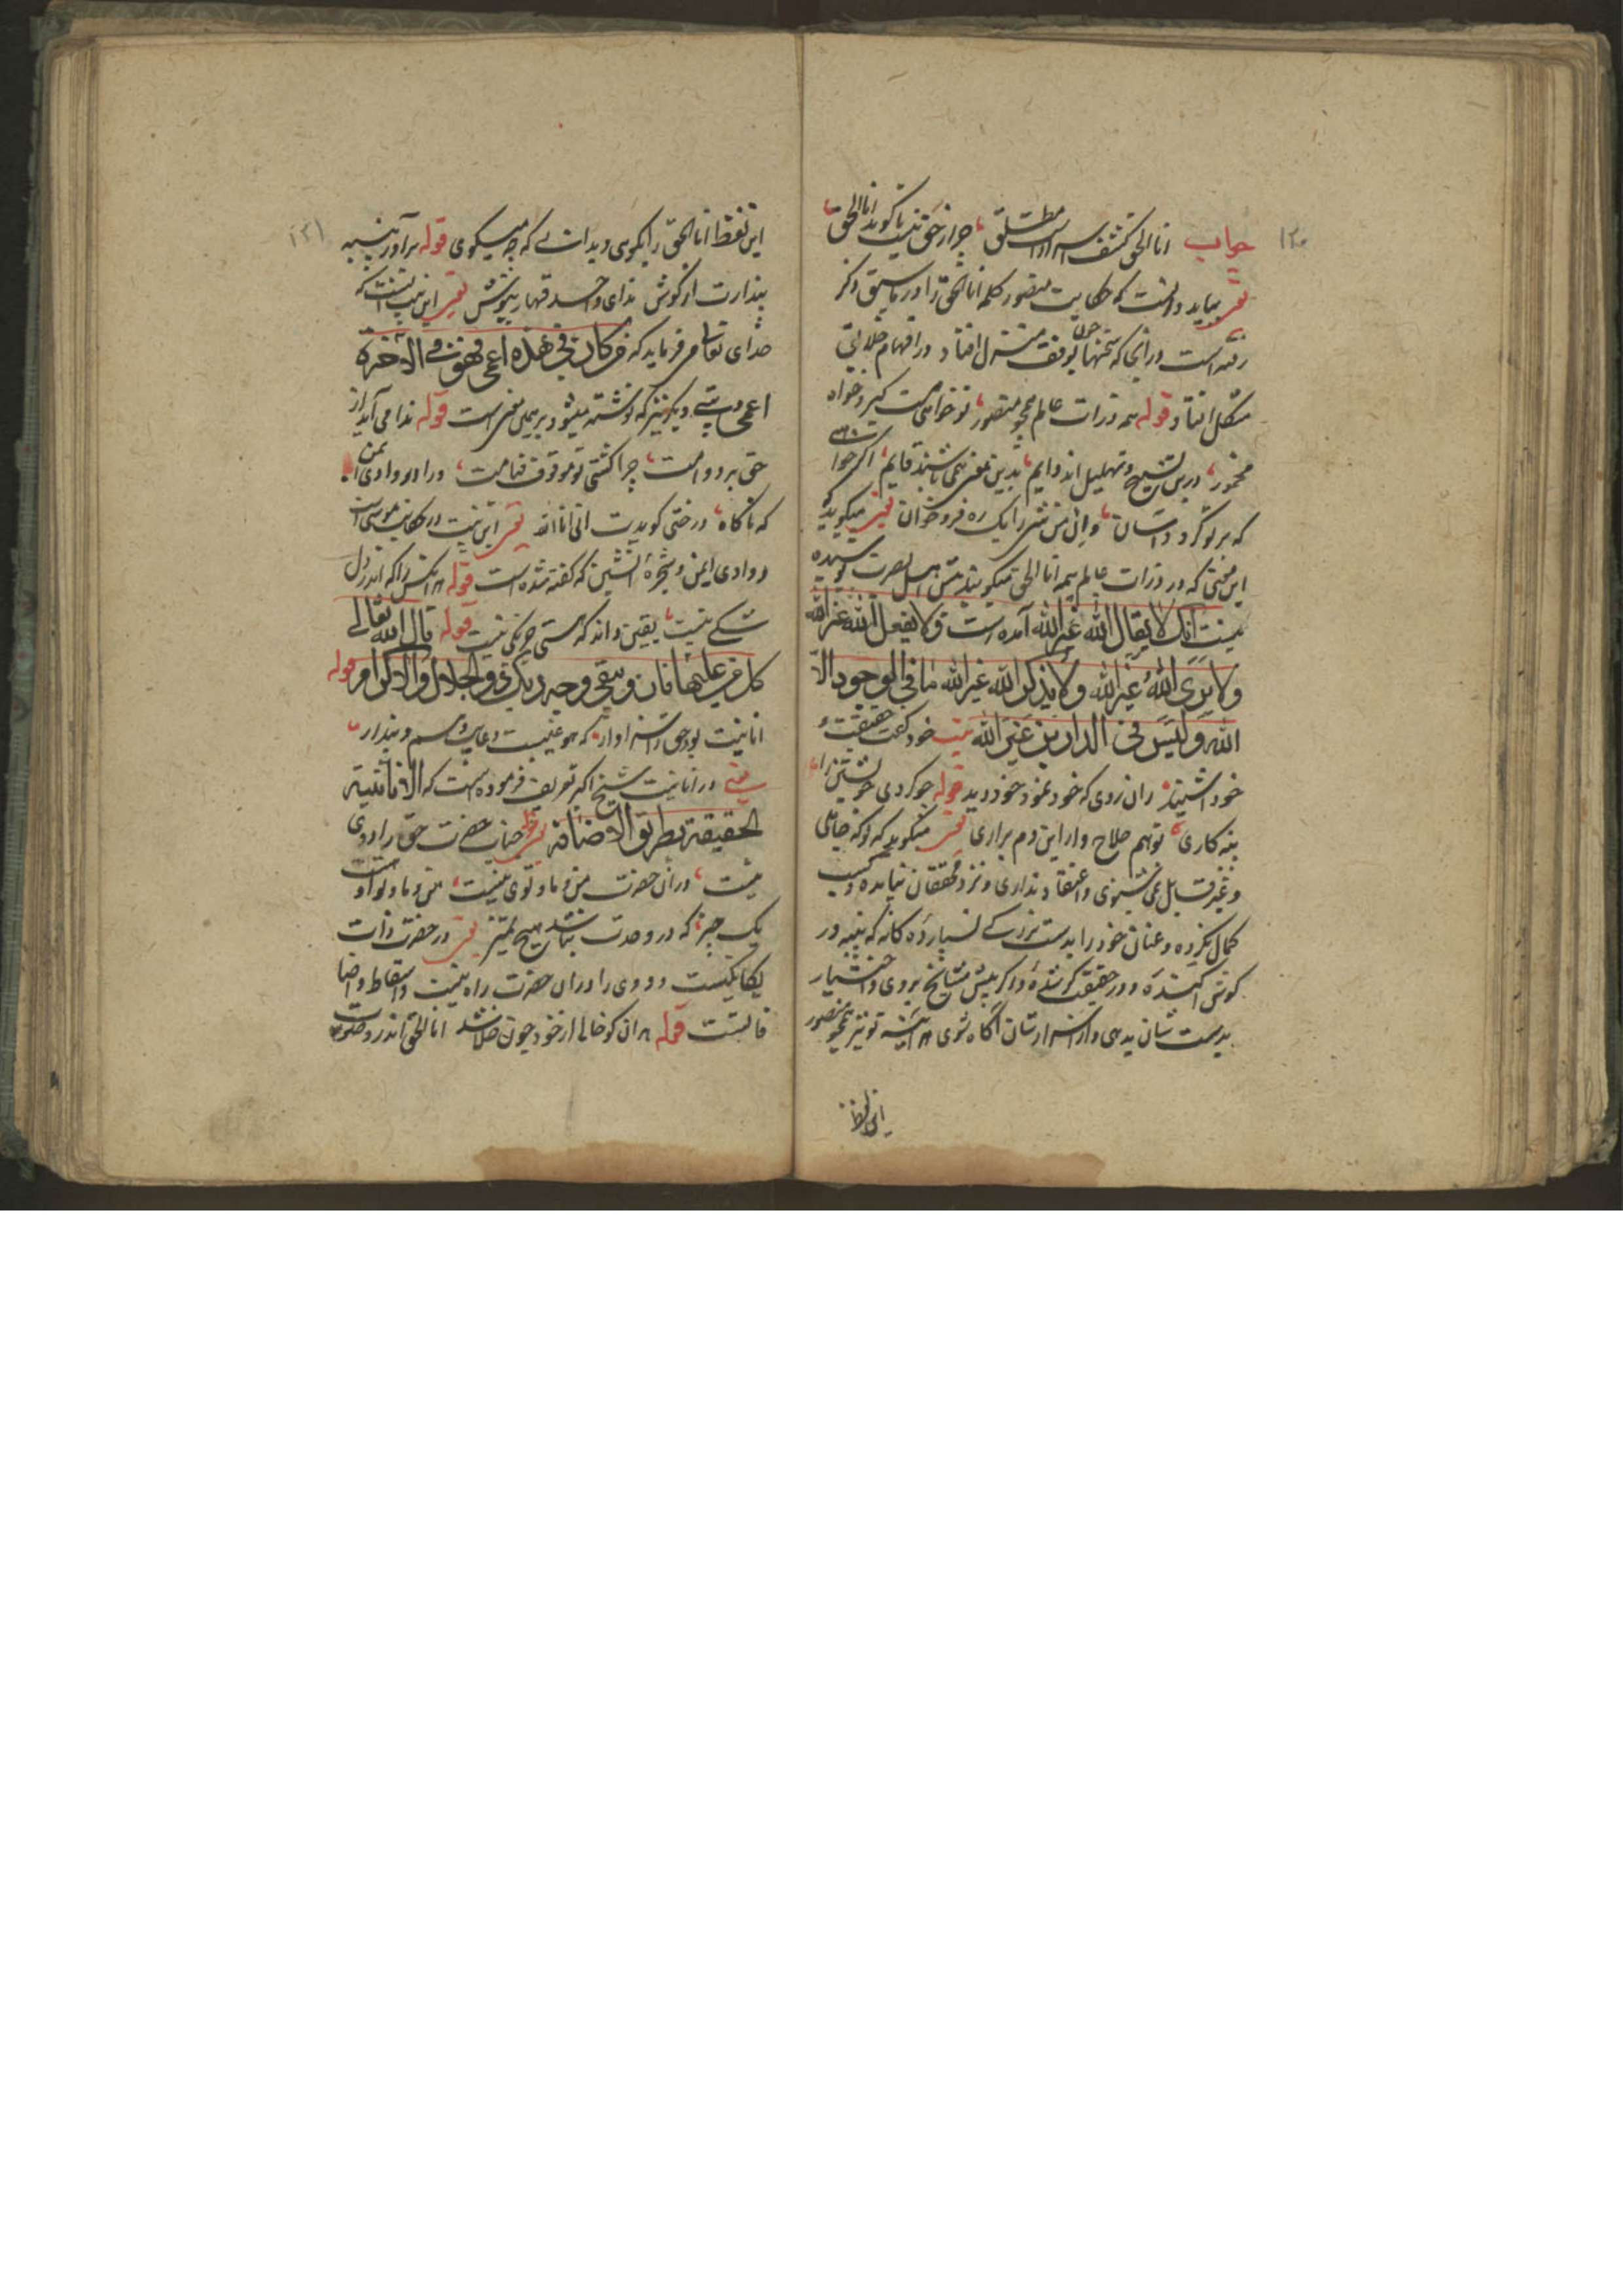 ۱۳۰
جواب اناالحق کشف اسرارست مطلق جز از حق کیست تا گوید اناالحق
بباید دانست که حکایت منصور کلمه اناالحق را در ما سبق ذکر
رفته است در انجا که سخنها چون بوفق منزل افتاد در افهام خلایق
مشکل افتاد قوله همه ذرات عالم همچو منصور تو خواهی مست گیر و خواه
مخمور درین تسبیح و تهلیل اند دایم بدین معنی همی باشند قایم اگر خواهی
که بر تو گردد آسان وان من شئ را یک ره فرو خوان میگوید که
این معنی که در ذرات عالم همه اناالحق میگویند پیش اهل بصیرت پوشیده
نیست آنک لا یقال الله غیر الله آمده است و لا یفعل الله غیر الله
ولا یری الله غیر الله ولا یذکر الله غیر الله ما فی الوجود الا
الله و لیس فی الدارین غیر الله بیت خود گفت حقیقت و
خود شنید زان روی که خود نمود خود دید قوله چو کردی خویشتن را
پنبه کاری تو هم حلاج وار این دم براری میگوید که تو که جاهلی
و غیر قابل می شنوی و اعتقاد نداری و نزد محققان نیامده و کسب
کمال نکرده و عنان خود را بدست بزرگی نسپارده کانه که پنبه در
گوش آکنده و در حقیقت گر بنده و اگر پیش مشایخ بروی و اختیار
بدست شان بدهی و از اسرارشان آگاه شوی هر آینه تو نیز همچو منصور
این لفظ
۱۳۱
این لفظ اناالحق را بگوی و بدانی که چه میگوی قوله برآور پنبه
پندارت از گوش ندای واحد قهار بنیوش این بیت آنست که
خدای تعالی میفرماید که من کان فی هذه اعمی فهو فی الآخرة
اعمی و بیتی دیگر نیز که نوشته میشود بر همین معنی است قوله ندا می آید از
حق بر دوامت چرا گشتی تو موقوف قیامت درآ در وادی ایمن
که ناگاه درختی گویدت انی انا الله این بیت در حکایت موسی است
و وادی ایمن و شجره آتشین که گفته شده است قوله هر آنکس را که اندر دل
شکی نیست یقین داند که هستی جز یکی نیست قوله قال الله تعالی
کل من علیها فان ویبقی وجه ربک ذو الجلال والاکرام قوله
انانیت بود حق را سزاوار که هو غیبست و غایب وهم و پندار
یعنی در انانیت شیخ اکبر تعریف فرموده است که الانانیة
الحقیقة بطریق الاضافة قوله جناب حضرت حق را دوی
نیست دران حضرت من و ما و توی نیست من و ما و تو و او هست
یک چیز که در وحدت نباشد هیچ تمییز در حضرت ذات
یکتا یکیست و دوی را در ان حضرت راه نیست و اسقاط اضا
فاتست قوله هر آن کو خالی از خود چون خلا شد اناالحق اندر و صوت